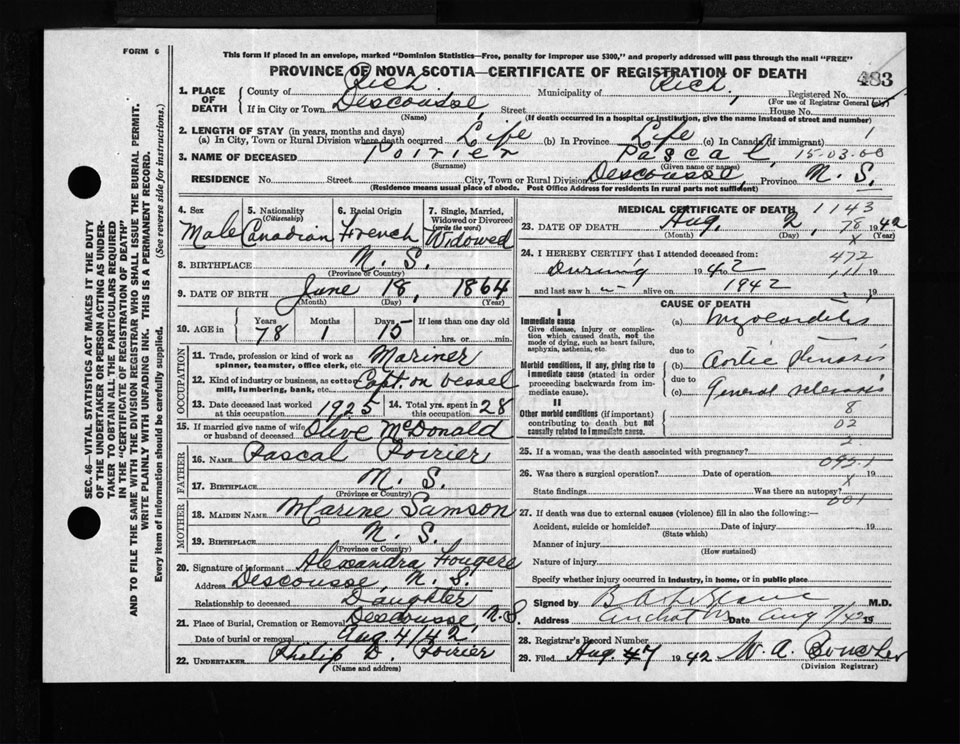 FORM 6
This form if placed in an envelope, marked "Dominion Statistics—Free, penalty for improper use $300," and properly addressed will pass through the mail "FREE"
PROVINCE OF NOVA SCOTIA—CERTIFICATE OF REGISTRATION OF DEATH
483
1. PLACE OF DEATH
County of Rich. Municipality of Rich. Registered No.
(For use of Registrar General only)
If in City or Town Descousse, Street House No.
(Name) (If death occurred in a hospital or institution, give the name instead of street and number)
2. LENGTH OF STAY (in years, months and days)
(a) In City, Town or Rural Division where death occurred Life (b) In Province Life (c) In Canada (if immigrant)
3. NAME OF DECEASED Poirier Pascal, 15-03-
(Surname) (Given name or names)
RESIDENCE No. Street City, Town or Rural Division Descousse, Province N. S.
(Residence means usual place of abode. Post Office Address for residents in rural parts not sufficient)
4. Sex Male
5. Nationality (Citizenship) Canadian
6. Racial Origin French
7. Single, Married, Widowed or Divorced (write the word) Widowed
8. BIRTHPLACE N. S.
(Province or Country)
9. DATE OF BIRTH June 18, 1864
(Month) (Day) (Year)
10. AGE in Years 78 Months 1 Days 15 If less than one day old hrs. or min.
OCCUPATION
11. Trade, profession or kind of work as spinner, teamster, office clerk, etc. Mariner
12. Kind of industry or business, as cotton mill, lumbering, bank, etc. Capt. on vessel
13. Date deceased last worked at this occupation 1925
14. Total yrs. spent in this occupation 28
15. If married give name of wife or husband of deceased Olive McDonald
FATHER
16. NAME Pascal Poirier
17. BIRTHPLACE N. S.
(Province or Country)
MOTHER
18. MAIDEN NAME Marine Samson
19. BIRTHPLACE N. S.
(Province or Country)
20. Signature of informant Alexandra Fougere
Address Descousse, N. S.
Relationship to deceased Daughter
21. Place of Burial, Cremation or Removal Descousse, N.S.
Date of burial or removal Aug. 4/42
22. UNDERTAKER Philip D. Poirier
(Name and address)
MEDICAL CERTIFICATE OF DEATH
23. DATE OF DEATH Aug. 2, 1942
(Month) (Day) (Year)
1143
78
X
24. I HEREBY CERTIFY that I attended deceased from:
During 1942 19
472
111
and last saw h alive on 1942 19
CAUSE OF DEATH
I
Immediate cause
Give disease, injury or complication which caused death, not the mode of dying, such as heart failure, asphyxia, asthenia, etc.
(a) Myocarditis
due to
Morbid conditions, if any, giving rise to immediate cause (stated in order proceeding backwards from immediate cause).
(b) Aortic Stenosis
due to
(c) General sclerosis
II
Other morbid conditions (if important) contributing to death but not causally related to immediate cause.
8
02
2
25. If a woman, was the death associated with pregnancy?
26. Was there a surgical operation? Date of operation 19
X
State findings Was there an autopsy?
001
27. If death was due to external causes (violence) fill in also the following:—
Accident, suicide or homicide? Date of injury 19
(State which)
Manner of injury
(How sustained)
Nature of injury
Specify whether injury occurred in industry, in home, or in public place
Signed by M.D.
Address Date Aug 7/42 19
28. Registrar's Record Number
29. Filed Aug. 7 1942
(Division Registrar)
SEC. 46—VITAL STATISTICS ACT MAKES IT THE DUTY
OF THE UNDERTAKER OR PERSON ACTING AS UNDERTAKER TO OBTAIN ALL THE PARTICULARS REQUIRED
IN THE "CERTIFICATE OF REGISTRATION OF DEATH"
AND TO FILE THE SAME WITH THE DIVISION REGISTRAR WHO SHALL ISSUE THE BURIAL PERMIT.
WRITE PLAINLY WITH UNFADING INK. THIS IS A PERMANENT RECORD.
Every item of information should be carefully supplied. (See reverse side for instructions.)